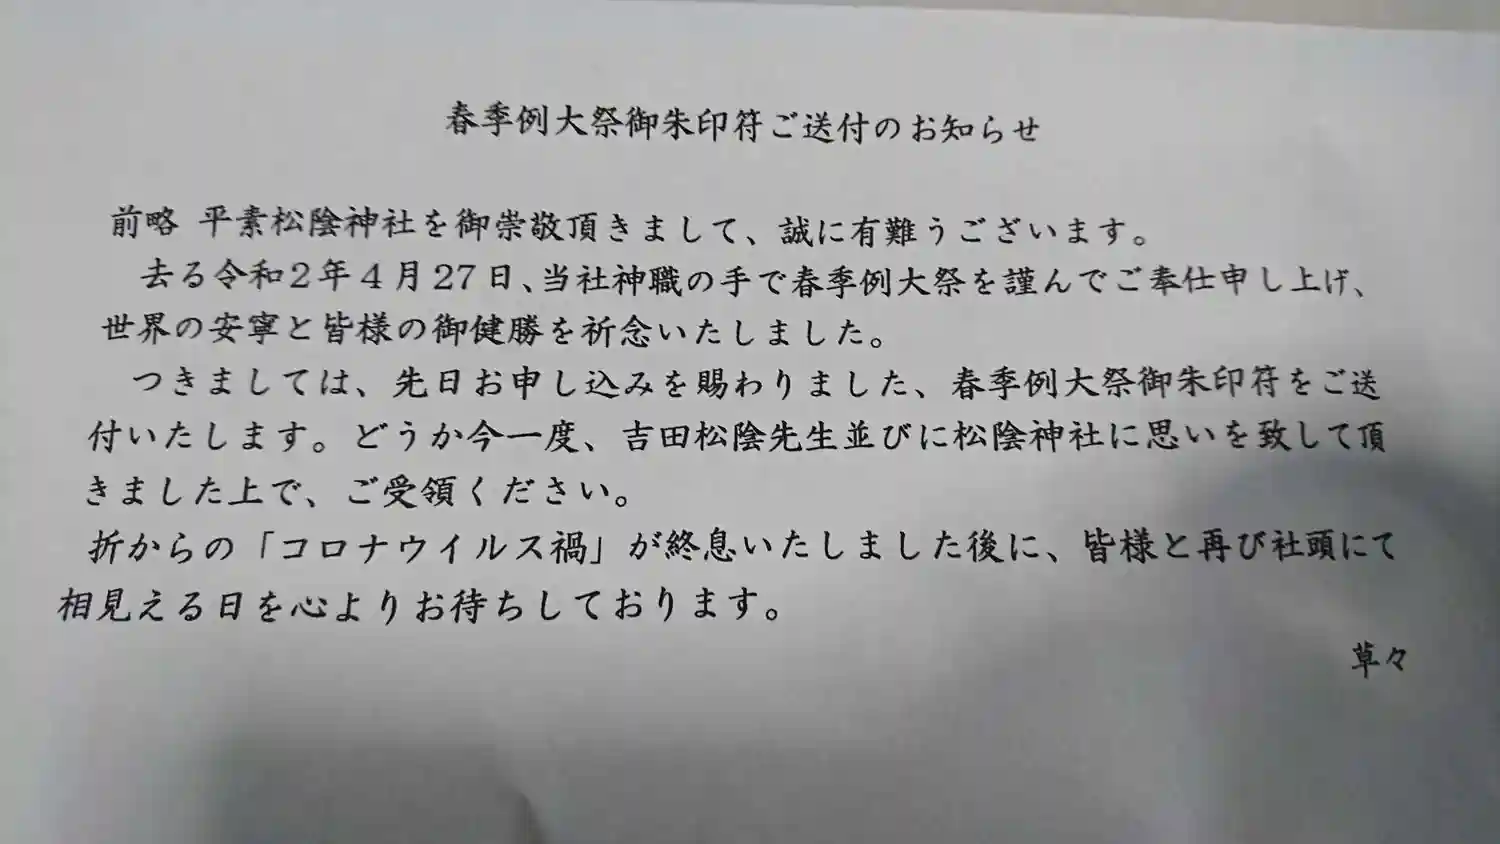 春季例大祭御朱印符ご送付のお知らせ
前略 平素松陰神社を御崇敬頂きまして、誠に有難うございます。
去る令和2年4月27日、当社神職の手で春季例大祭を謹んでご奉仕申し上げ、
世界の安寧と皆様の御健勝を祈念いたしました。
つきましては、先日お申し込みを賜わりました、春季例大祭御朱印符をご送
付いたします。どうか今一度、吉田松陰先生並びに松陰神社に思いを致して頂
きました上で、ご受領ください。
折からの「コロナウイルス禍」が終息いたしました後に、皆様と再び社頭にて
相見える日を心よりお待ちしております。
草々